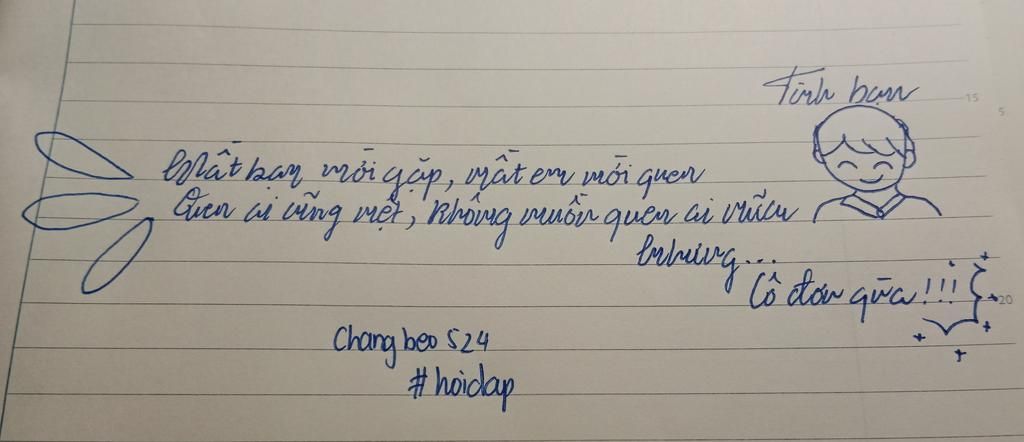 Tình bạn
15
5
Mất bạn mới gặp, mất em mới quen
Quen ai cũng mệt, không muốn quen ai nữa
Nhưng...
Cô đơn qúa!!!
20
Changbeo524
#hoidap